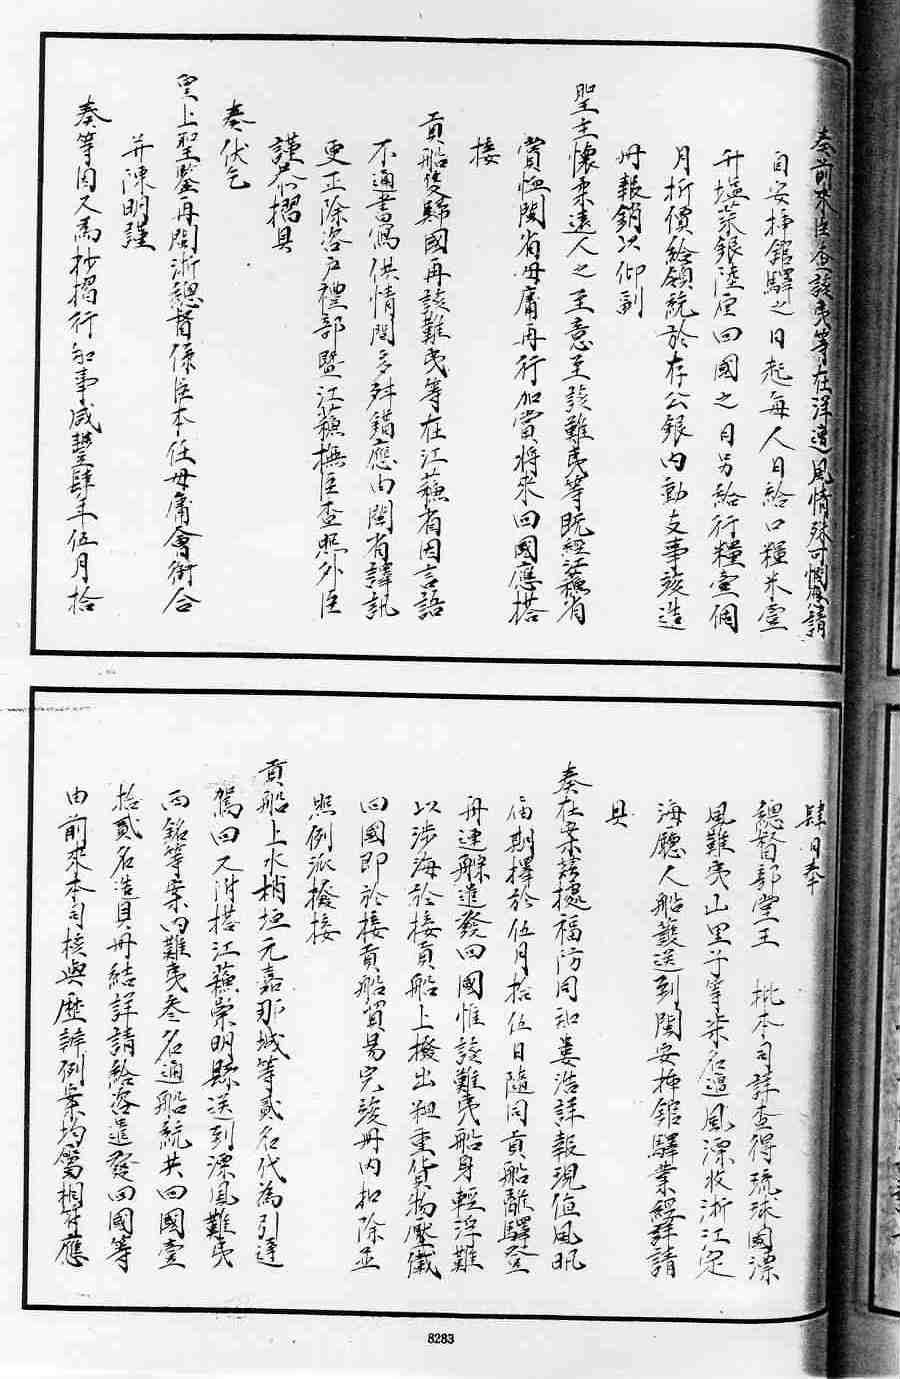 奏前來臣查該夷等在洋遭風情殊可憫應請
自安揷館驛之日起每人日給口糧米壹
升塩菜銀陸厘回國之日另給行糧壹個
月折價給領統於存公銀内動支事竣造
册報銷以仰副
聖主懷柔遠人之至意至該難夷等既經江蘓省
賞恤閩省毋庸再行加賞將來回國應搭
接
貢船隻歸國再該難夷等在江蘓省因言語
不通書寫供情間多舛錯應由閩省譯訊
更正除咨戶禮部暨江蘓撫臣查照外臣
謹恭摺具
奏伏乞
皇上聖鑒再閩浙總督係臣本任毋庸會銜合
并陳明謹
奏等因又爲抄摺行知事咸豐肆年伍月拾
肆日奉
總督部堂王 批本司詳查得琉球國漂
風難夷山里子等柒名遭風漂收浙江定
海廳人船護送到閩安揷館驛業經詳請
具
奏在案茲據福防同知婁浩詳報現值風汛
屆期擇於伍月拾伍日隨同貢船離驛登
舟連䑸進發回國惟該難夷船身輕浮難
以涉海於接貢船上撥出粗重貨物壓儎
回國即於接貢船貿易完竣册内扣除並
照例派撥接
貢船上水梢垣元嘉那城等貳名代為引導
駕回又附搭江蘓崇明縣送到漂風難夷
西銘等案内難夷叁名通船統共回國壹
拾貳名造具册結詳請給咨遣發回國等
由前來本司核與歷辦例案均屬相符應
8283